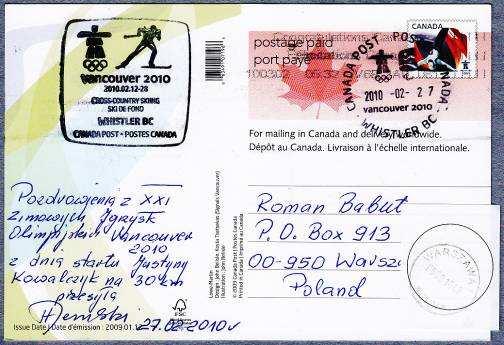 vancouver 2010
2010.02.12-28
CROSS-COUNTRY SKIING
SKI DE FOND
WHISTLER BC
CANADA POST • POSTES CANADA
postage paid
port payé
CANADA
CANADA POST
2010 -02- 27
vancouver 2010
WHISTLER BC
For mailing in Canada and delivery worldwide.
Dépôt au Canada. Livraison à l'échelle internationale.
Pozdrowienia z XXI
Zimowych Igrzysk
Olimpijskich Vancouver
2010
z dnia startu Justyny
Kowalczyk na 30 km
przesyła
27.02.2010 r
Roman Babut
P.O. Box 913
00-950 Warsz
Poland
WARSZAWA
FSC
Issue Date / Date d'émission : 2009.01.
© 2009 Canada Post / Postes Canada